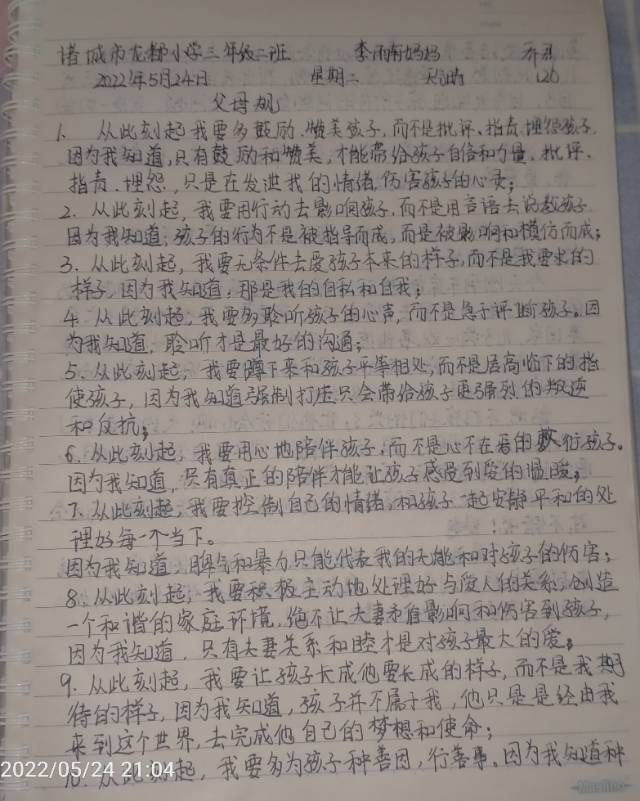 诸城市龙都小学三年级二班 李雨轩妈妈
2022年5月24日 星期二 天晴 120
父母规
1、从此刻起我要多鼓励、赞美孩子,而不是批评、指责、埋怨孩子,
因为我知道,只有鼓励和赞美,才能带给孩子自信和力量,批评、
指责、埋怨,只是在发泄我的情绪,伤害孩子的心灵;
2、从此刻起,我要用行动去影响孩子,而不是用言语去说教孩子
因为我知道,孩子的行为不是被指导而成,而是被影响和模仿而成;
3、从此刻起,我要无条件去爱孩子本来的样子,而不是我要求的
样子,因为我知道,那是我的自私和自我;
4、从此刻起,我要多聆听孩子的心声,而不是急于评断孩子。因
为我知道,聆听才是最好的沟通;
5、从此刻起,我要蹲下来和孩子平等相处,而不是居高临下的指
使孩子,因为我知道强制打压只会带给孩子更强烈的叛逆
和反抗;
6、从此刻起,我要用心地陪伴孩子,而不是心不在焉的敷衍孩子。
因为我知道,只有真正的陪伴才能让孩子感受到爱的温暖;
7、从此刻起,我要控制自己的情绪,和孩子一起安静平和的处
理好每一个当下。
因为我知道,脾气和暴力只能代表我的无能和对孩子的伤害;
8、从此刻起,我要积极主动地处理好与爱人的关系,创造
一个和谐的家庭环境,绝不让夫妻矛盾影响和伤害到孩子,
因为我知道,只有夫妻关系和睦才是对孩子最大的爱;
9、从此刻起,我要让孩子长成他要长成的样子,而不是我期
待的样子,因为我知道,孩子并不属于我,他只是是经由我
来到这个世界,去完成他自己的梦想和使命;
10、从此刻起,我要多为孩子种善因,行善事。因为我知道种
2022/05/24 21:04